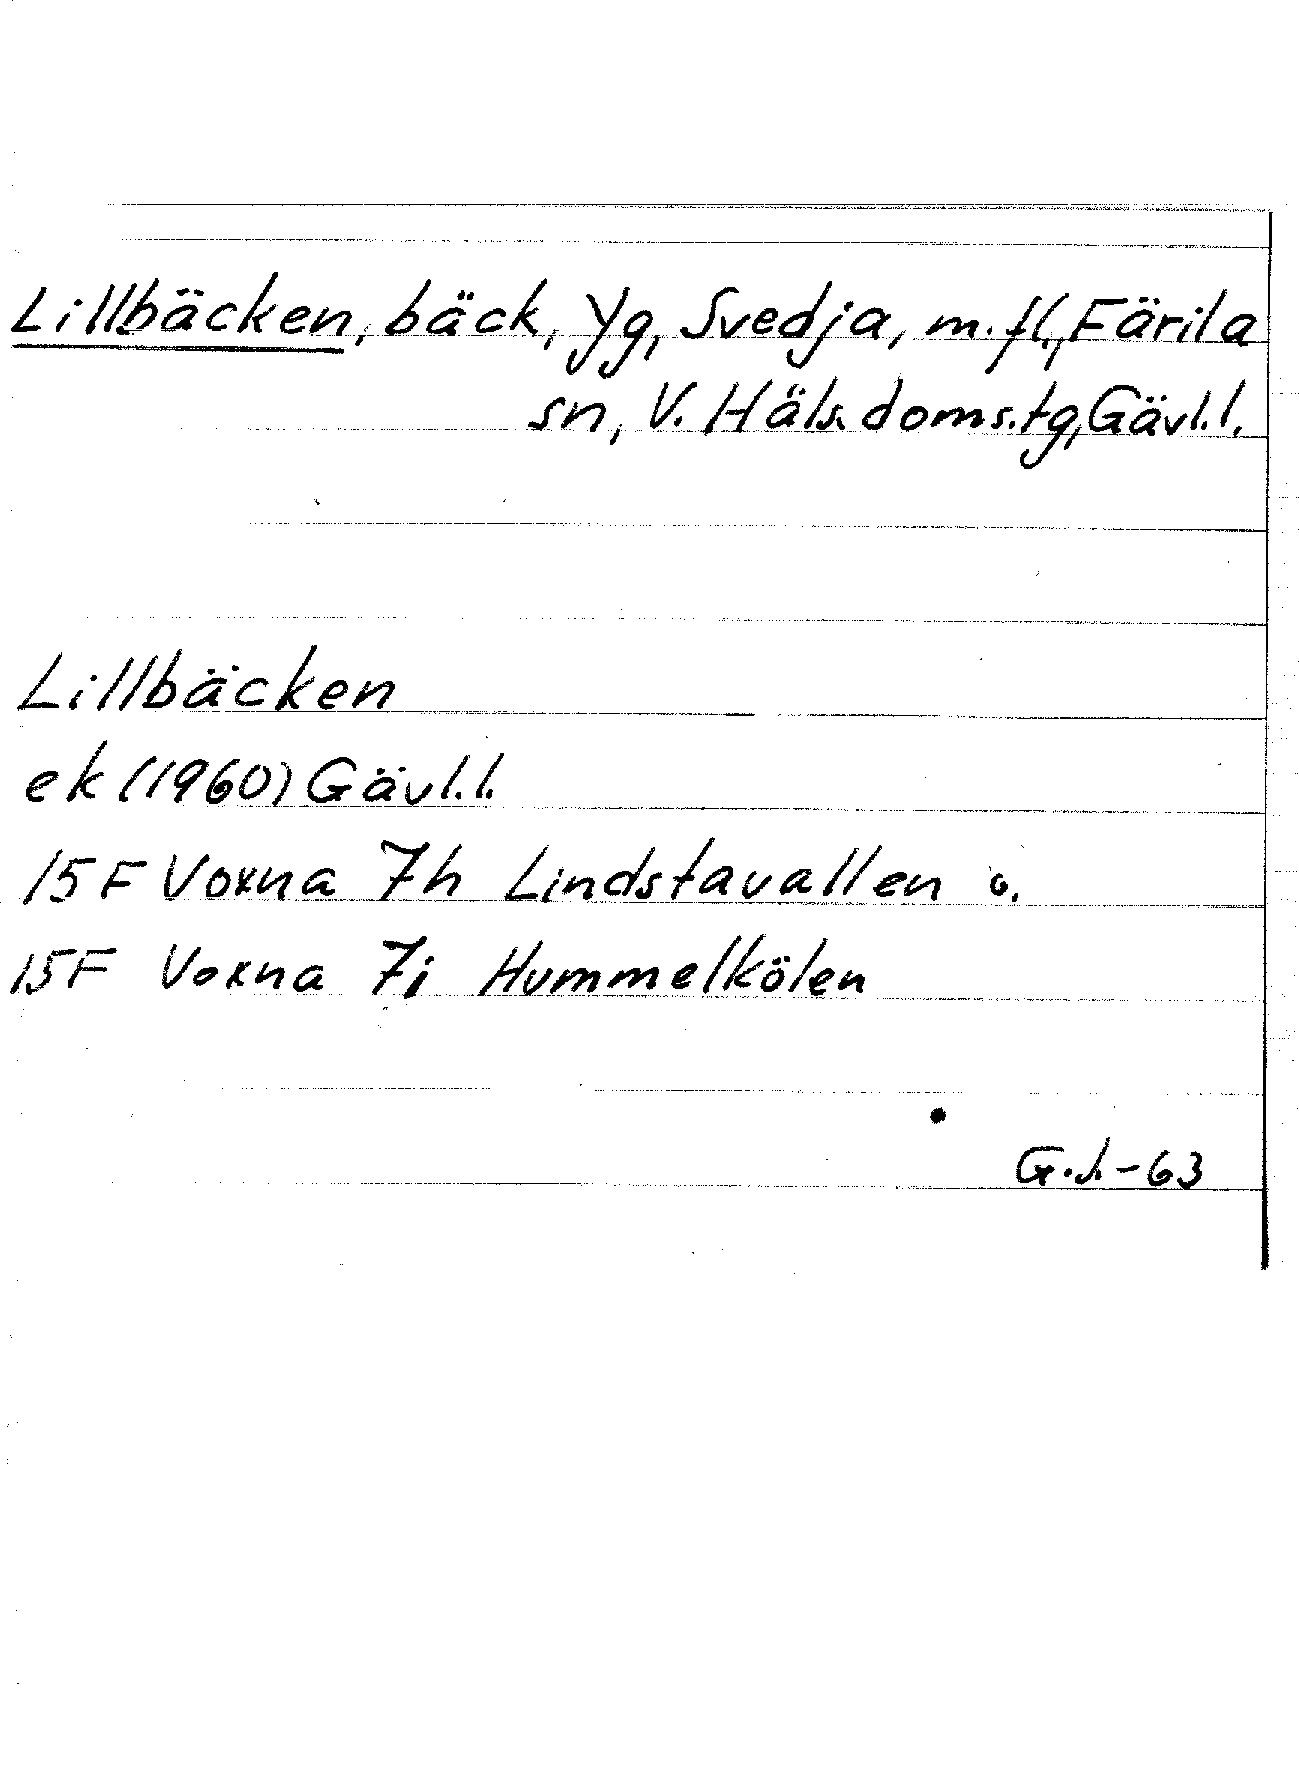 Lillbäcken, bäck, Yg, Svedja, m.fl., Färila
sn, V. Häls. doms.tg, Gävl.l.
Lillbäcken
ek (1960) Gävl.l.
15F Voxna 7h Lindstavallen o.
15F Voxna 7i Hummelkölen
G.J.-63